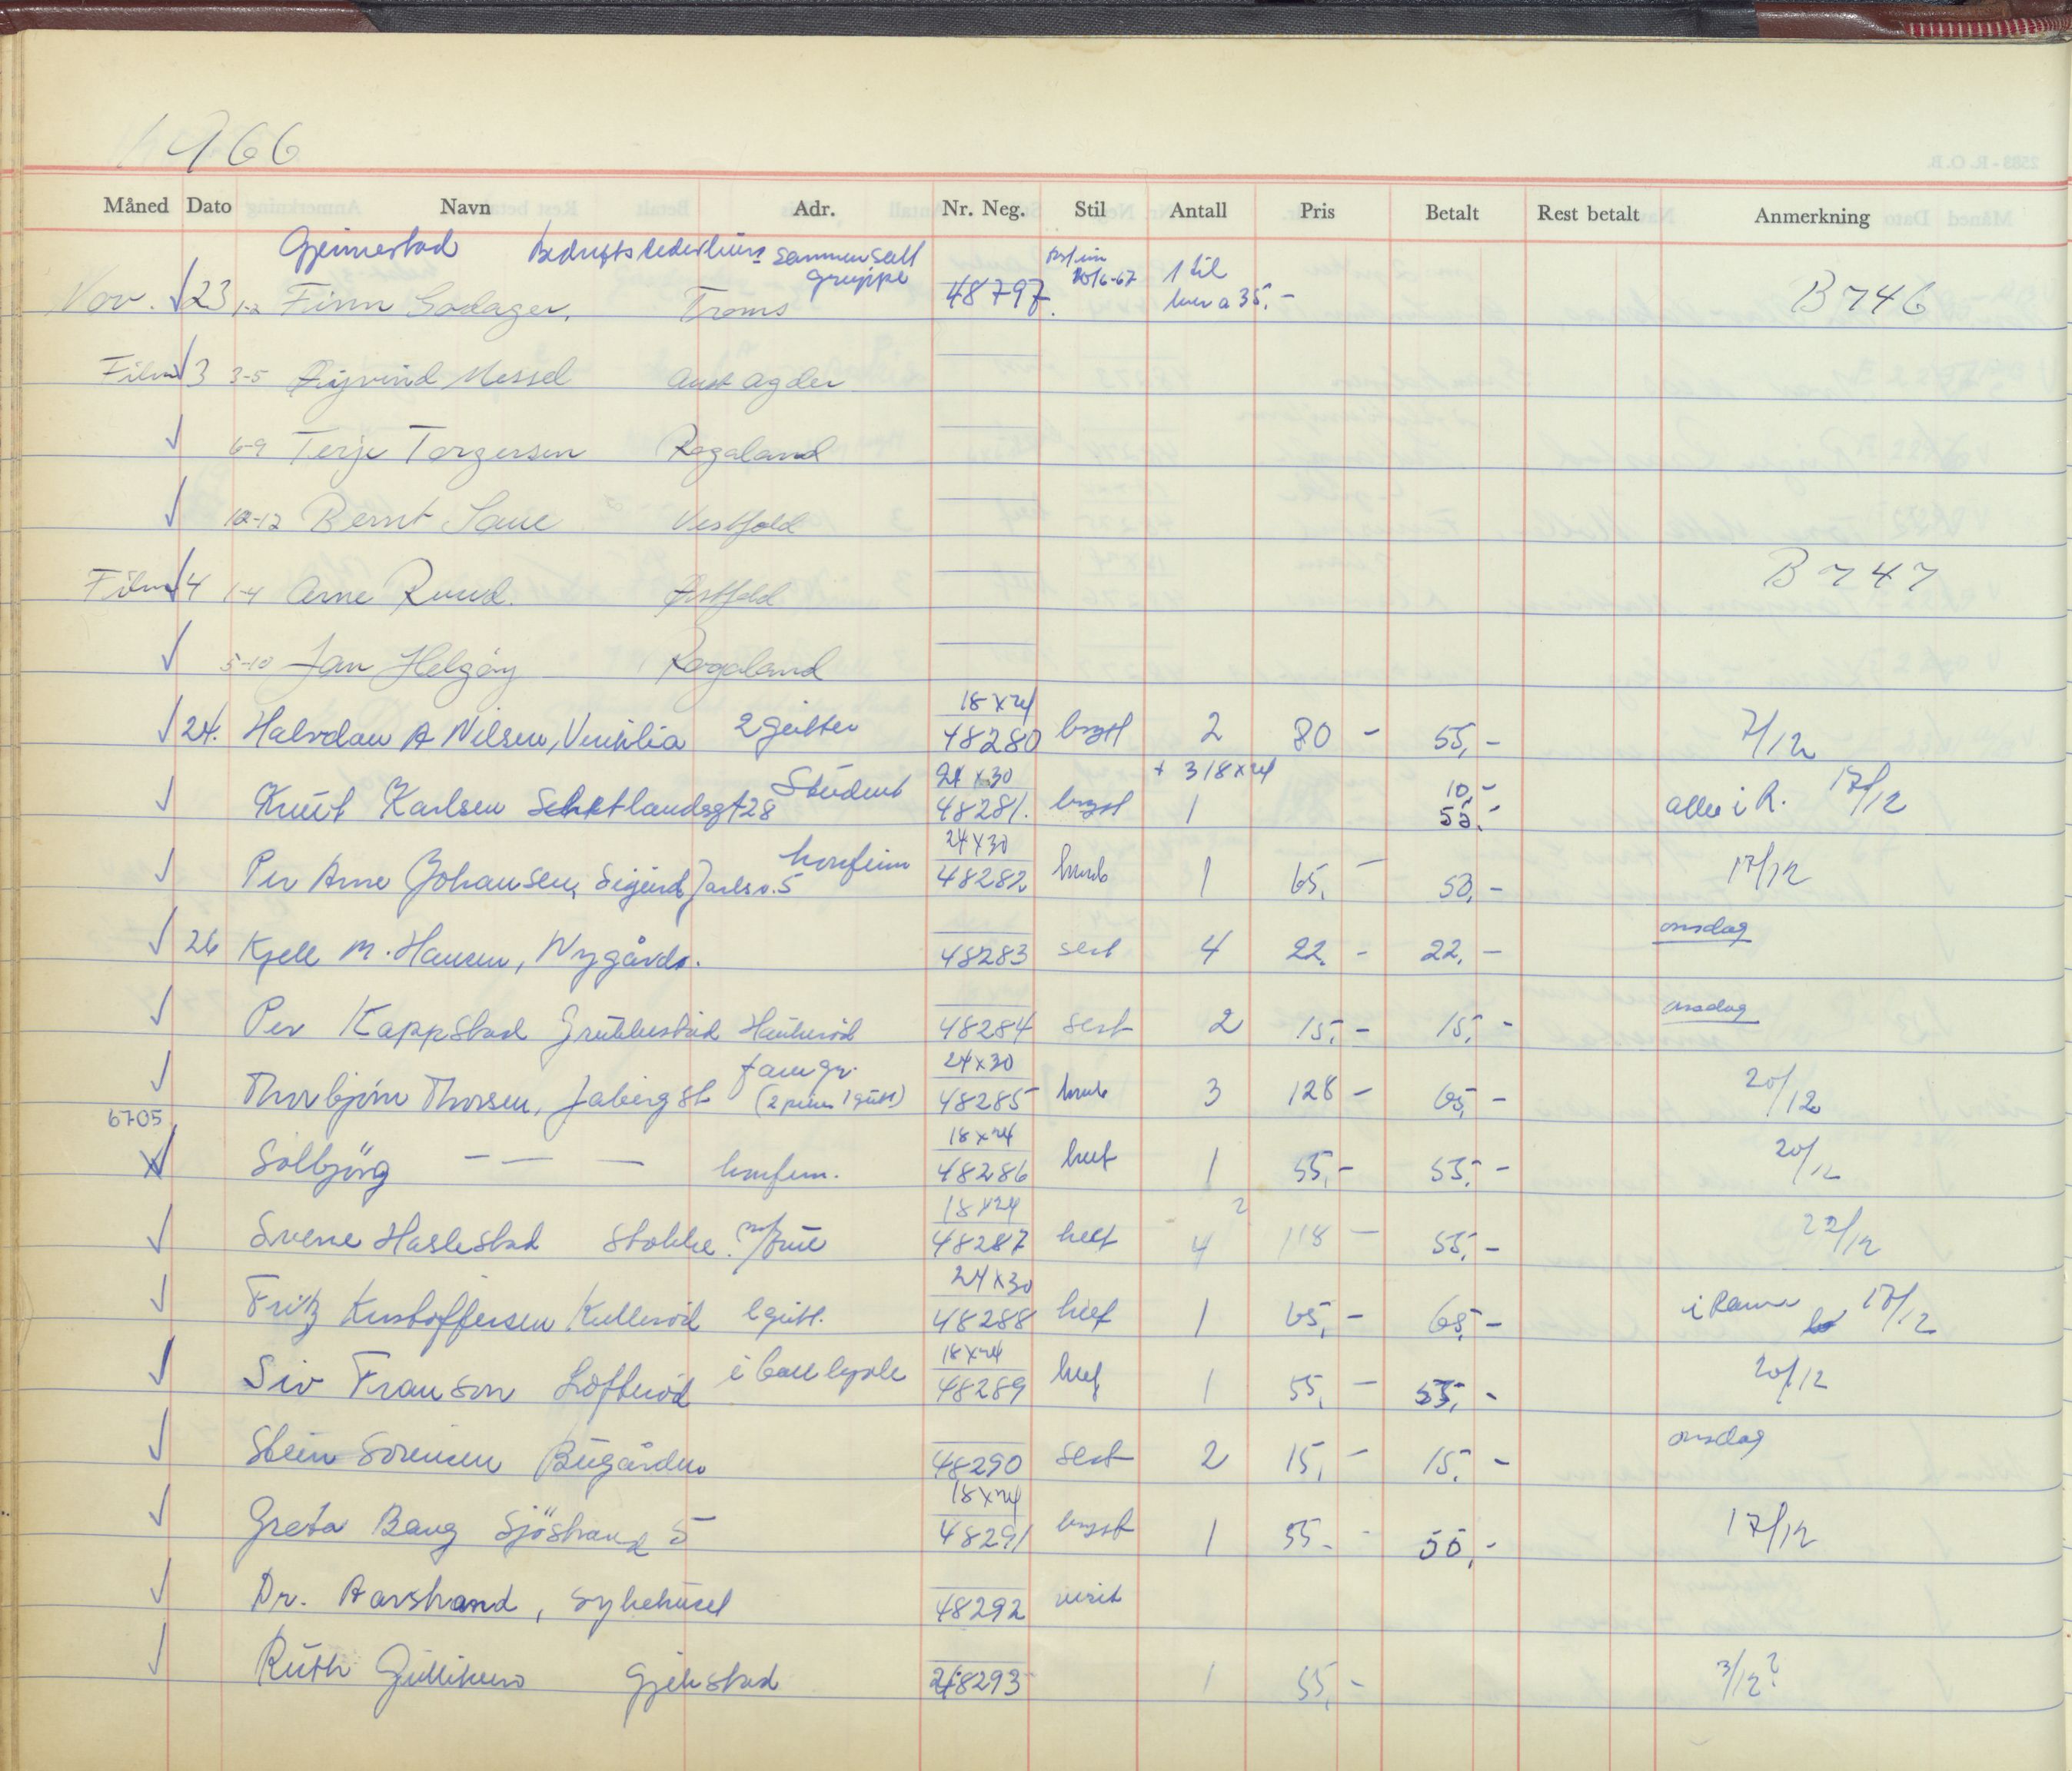 1966
Måned Dato Navn Adr. Nr. Neg. Stil Antall Pris Betalt Rest betalt Anmerkning
Gjennestad Bedriftslederkurs sammensatt gruppe
Nov. 23 1-2 Finn Solager, Troms 48797. 20/6-67 1 til hver a 35,- B746
Film 3 3-5 Øyvind Messel Aust Agder
6-9 Terje Torgersen Rogaland
10-12 Bernt Saue Vestfold
Film 4 1-4 Arne Ruud. Østfold B747
5-10 Jan Helgøy Rogaland
18x24
24. Halvdan A Nilsen, Verkilia 2 gutter 48280 byst 2 80 - 55,- 7/12
Student 24x30 + 3 18x24 10,-
Knut Karlsen Schetlandsgt 28 48281. byst 1 55,- alle i R. 17/12
konfirm 24x30
Per Arne Johansen, Sigurd Jarls v. 5 48282 knub 1 65,- 53,- 17/12
26 Kjell M. Hansen, Nygårds. 48283 sert 4 22,- 22,- onsdag
Per Kappstad Grubbestad Haukerød 48284 sert 2 15,- 15,- onsdag
fam gr. 24x30
Thorbjørn Thorsen, Jaberg st (2 piker 1 gutt) 48285 knub 3 128 - 65,- 20/12
6705 18x24
Solbjörg - - - konfirm. 48286 helf 1 55,- 55,- 20/12
18x24 2
Sverre Haslestad Stokke. m/frue 48287 helf 4 118 - 55,- 22/12
24x30
Fritz Kristoffersen Kullerød 1 gutt. 48288 helf 1 65,- 65,- i Ramme 17/12
18x24
Siv Franson Lofterød i ballkjole 48289 helf 1 55,- 55,- 20/12
Stein Sørensen Bugården 48290 sert 2 15,- 15,- onsdag
18x24
Greta Bang Sjöstrand 5 48291 byst 1 55,- 55,- 17/12
Dr. Aarstrand, sykehuset 48292 visit
Ruth Gulliksen Gjekstad 48293 1 55,- 3/12?